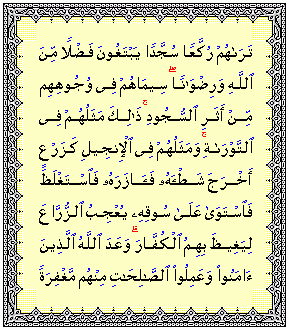 تَرَىٰهُمْ رُكَّعًا سُجَّدًا يَبْتَغُونَ فَضْلًا مِّنَ
ٱللَّهِ وَرِضْوَٰنًا ۖ سِيمَاهُمْ فِى وُجُوهِهِم
مِّنْ أَثَرِ ٱلسُّجُودِ ۚ ذَٰلِكَ مَثَلُهُمْ فِى
ٱلتَّوْرَىٰةِ ۚ وَمَثَلُهُمْ فِى ٱلْإِنجِيلِ كَزَرْعٍ
أَخْرَجَ شَطْـَٔهُۥ فَـَٔازَرَهُۥ فَٱسْتَغْلَظَ
فَٱسْتَوَىٰ عَلَىٰ سُوقِهِۦ يُعْجِبُ ٱلزُّرَّاعَ
لِيَغِيظَ بِهِمُ ٱلْكُفَّارَ ۗ وَعَدَ ٱللَّهُ ٱلَّذِينَ
ءَامَنُوا۟ وَعَمِلُوا۟ ٱلصَّٰلِحَٰتِ مِنْهُم مَّغْفِرَةً